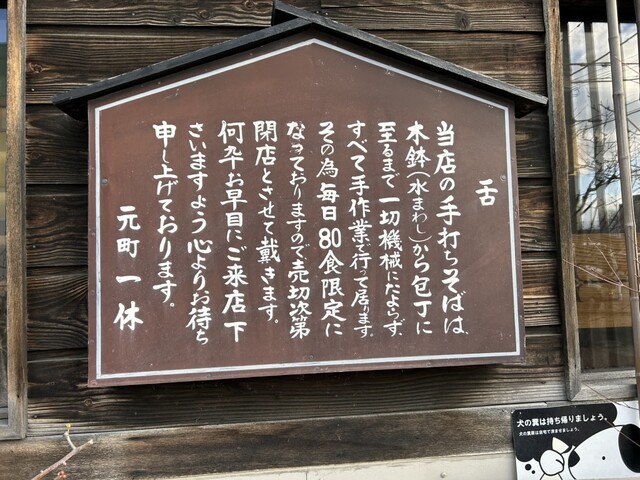 舌
当店の手打ちそばは、
木鉢(水まわし)から包丁に
至るまで一切機械にたよらず、
すべて手作業で行って居ります。
その為毎日80食限定に
なっておりますので売切次第
閉店とさせて戴きます。
何卆お早目にご来店下
さいますよう心よりお待ち
申し上げております。
元町一休
犬の糞は持ち帰りましょう。
犬の糞尿は自宅で済ませましょう。